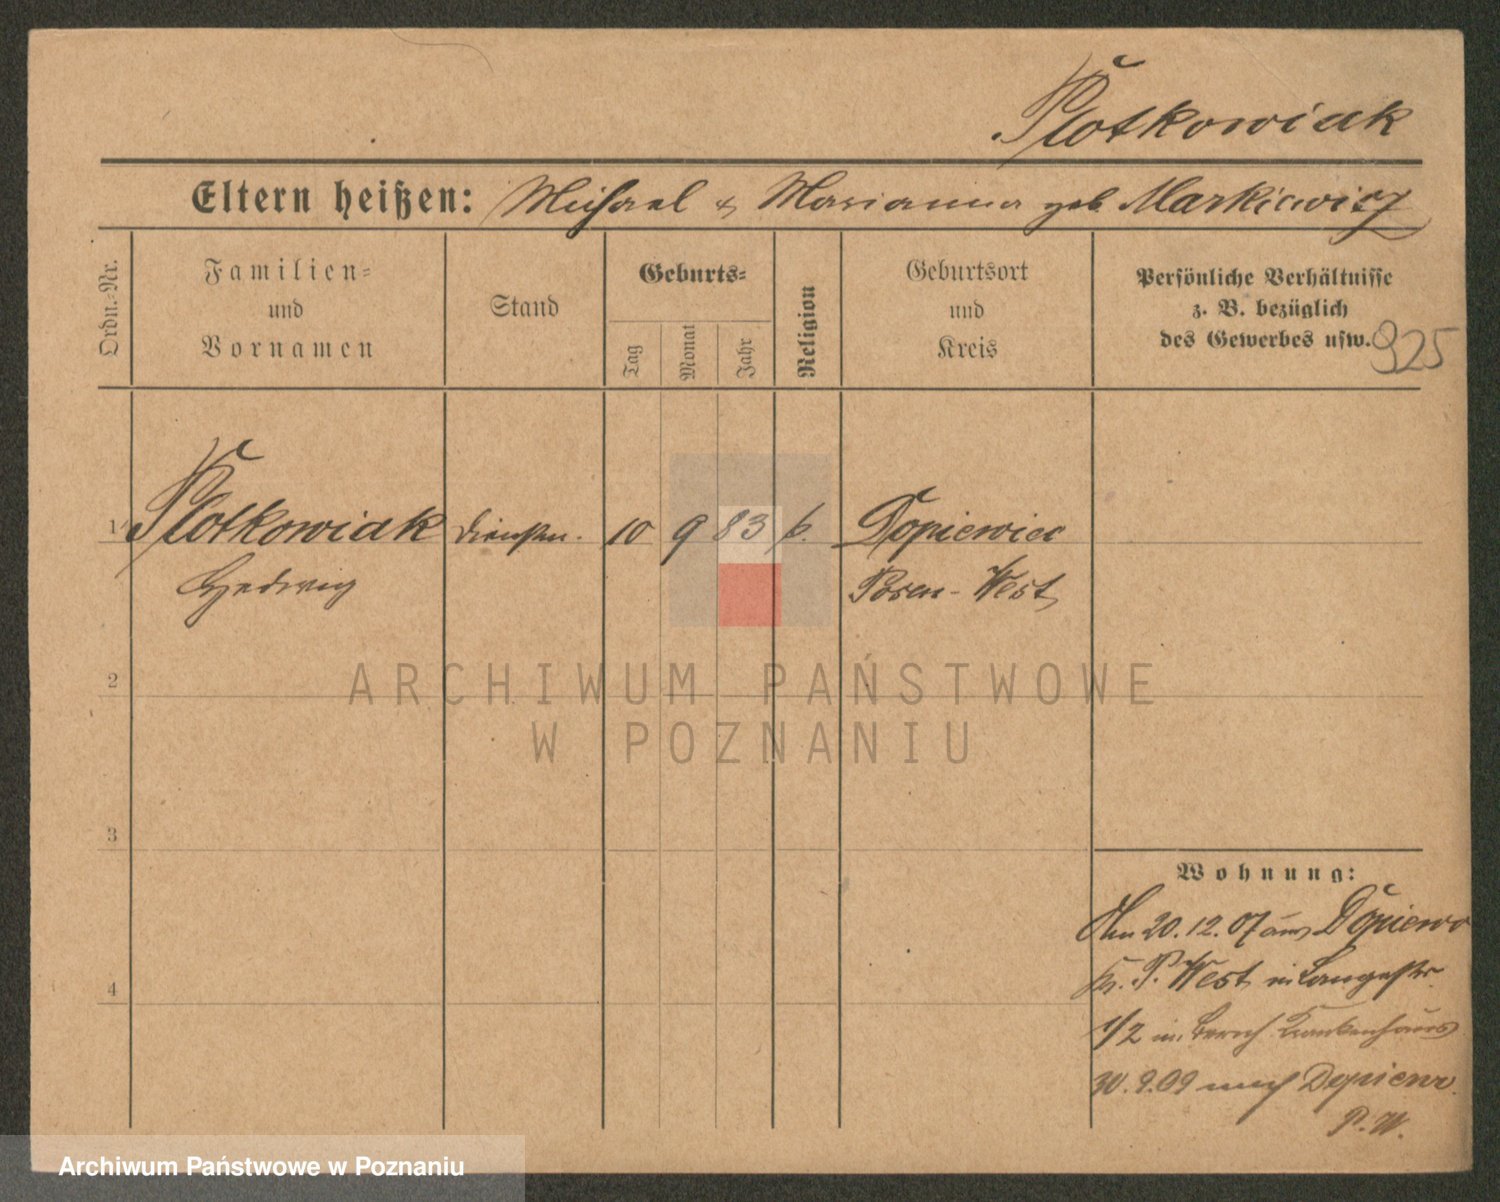 Plotkowiak
Eltern heißen: Michael & Marianna geb. Markiewicz
Ordn.-Nr.
Familien- und Vornamen
Stand
Geburts-
Tag
Monat
Jahr
Religion
Geburtsort und Kreis
Persönliche Verhältnisse
z. B. bezüglich
des Gewerbes usw.
925
1 Plotkowiak 10 9 83 k. Dopiewiec
Hedwig Posen-West
2
3
4
Wohnung:
20.12.07 aus Dopiewo
Kr. P. West in Langestr.
1/2 im Krankenhaus
30.9.09 nach Dopiewo
P. W.
ARCHIWUM PAŃSTWOWE
W POZNANIU
Archiwum Państwowe w Poznaniu